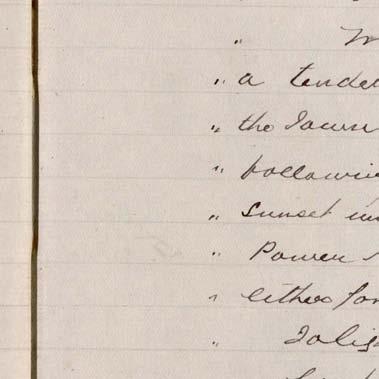 "
" a tende
" the Town
" followi
" Sunset un
" Power
" either for
" To lig